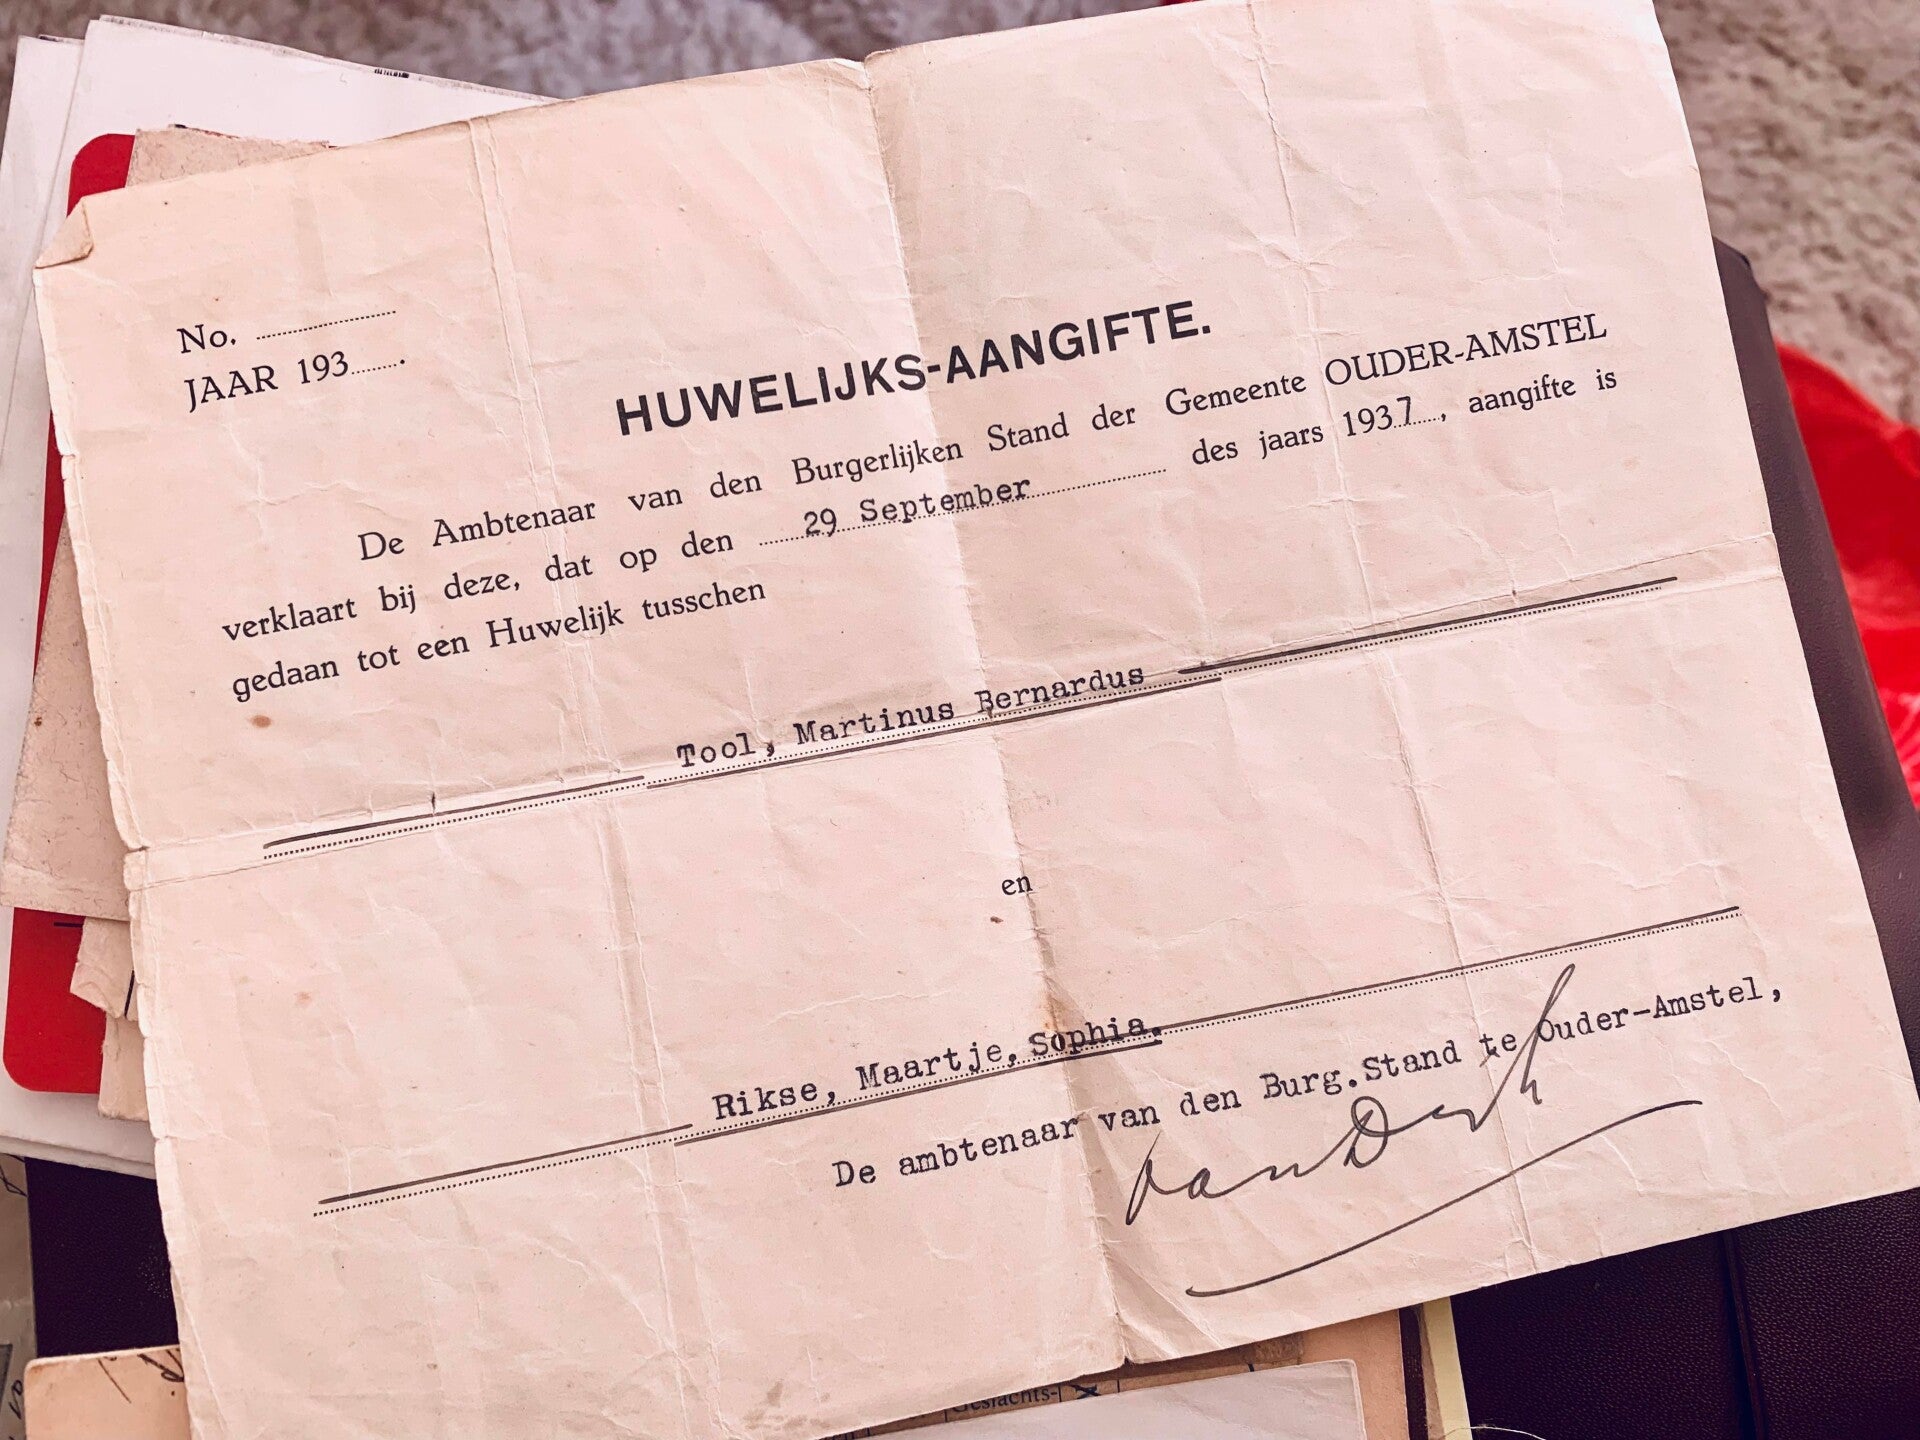 No.
JAAR 193 .
HUWELIJKS-AANGIFTE.
De Ambtenaar van den Burgerlijken Stand der Gemeente OUDER-AMSTEL
verklaart bij deze, dat op den 29 September des jaars 1937, aangifte is
gedaan tot een Huwelijk tusschen
Tool, Martinus Bernardus
en
Rikse, Maartje, Sophia.
De ambtenaar van den Burg.Stand te Ouder-Amstel,
Geslachts-